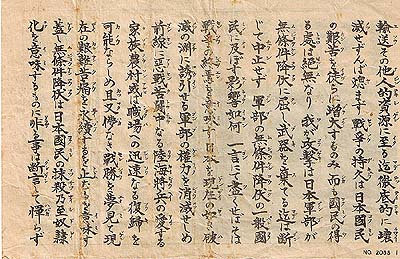 輸送その他人的資源に至る迄徹底的に壊
滅せずんば熄まず 戦争の持久は日本國民
の艱苦を徒らに増大するのみ 而も國民の得
る處は絶無なり 我が攻撃は日本軍部が
無條件降伏に屈し武器を棄てる迄は断
じて中止せず 軍部の無條件降伏の一般國
民に及ぼす影響如何 一言にて盡くせばそは
戦争の終焉を意味す 日本を現在の如き破
滅の淵に誘引せる軍部の権力を消滅せしめ
前線に悪戦苦闘中なる陸海将兵の愛する
家族農村或は職場への迅速なる復帰を
可能ならしめ且又儚なき戦勝を夢見て現
在の艱難苦痛を永續するを止むるを意味す
蓋し無條件降伏は日本國民の抹殺乃至奴隷
化を意味するものに非る事は断言して憚らず
NO. 2088